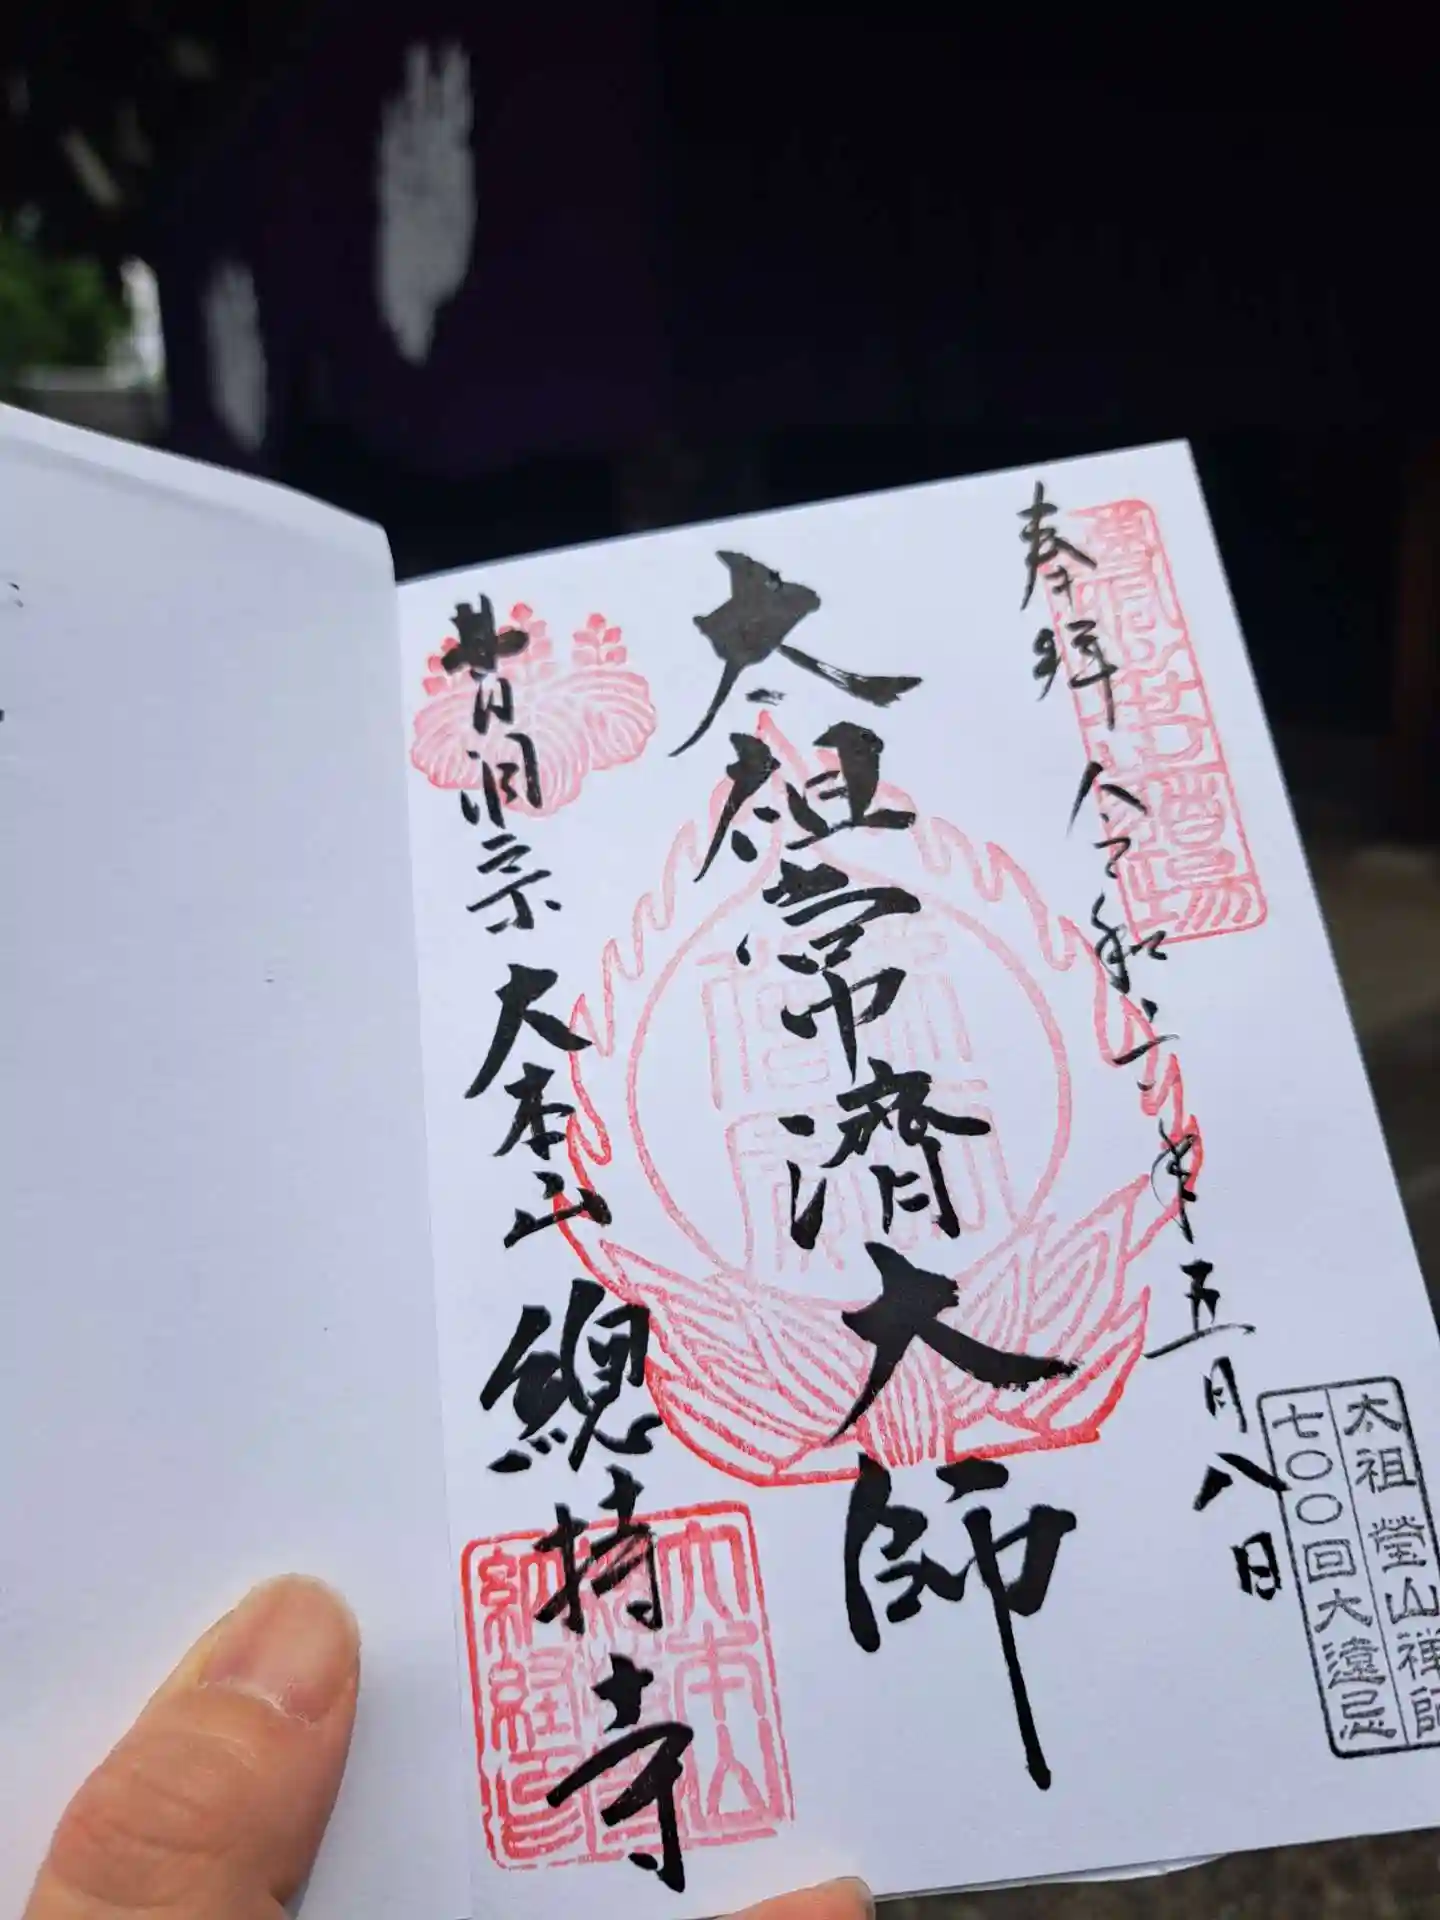 奉拝
令和六年五月八日
太祖瑩山禅師
七〇〇回大遠忌
太祖常濟大師
曹洞宗
大本山
總持寺
大本山
總持寺
納経印